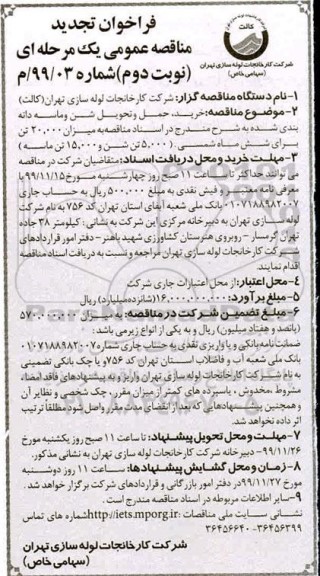 کالت
شرکت کارخانجات لوله سازی تهران
(سهامی خاص)
فراخوان تجدید
مناقصه عمومی یک مرحله ای
(نوبت دوم) شماره ۹۹/۰۳/م
۱-نام دستگاه مناقصه گزار: شرکت کارخانجات لوله سازی تهران(کالت)
۲-موضوع مناقصه:خرید، حمل و تحویل شن وماسه دانه
بندی شده به شرح مندرج در اسناد مناقصه به میزان ۲۰,۰۰۰ تن
برای شش ماه شمسی. (۵,۰۰۰ تن شن و ۱۵,۰۰۰ تن ماسه)
۳-مهلت خرید و محل دریافت اسناد: متقاضیان شرکت در مناقصه
می توانند حداکثر تا ساعت ۱۱ صبح روز چهارشنبه مورخ ۹۹/۱۱/۱۵ با ارائه
معرفی نامه معتبر و فیش نقدی به مبلغ ۵۰۰,۰۰۰ ریال به حساب جاری
۰۱۰۷۱۸۸۹۸۲۰۰۷ بانک ملی شعبه آبفای استان تهران کد ۷۵۶ به نام شرکت
لوله سازی تهران به دبیرخانه مرکزی این شرکت به نشانی: کیلومتر ۳۸ جاده
تهران گرمسار - روبروی هنرستان کشاورزی شهید باهنر - دفتر امور قراردادهای
شرکت کارخانجات لوله سازی تهران مراجعه و نسبت به دریافت اسناد مناقصه
اقدام نمایند.
۴-محل اعتبار: از محل اعتبارات جاری شرکت
۵-مبلغ برآورد: ۱۶,۰۰۰,۰۰۰,۰۰۰(شانزده میلیارد) ریال
۶-مبلغ تضمین شرکت در مناقصه: به میزان ۵۷۰,۰۰۰,۰۰۰
(پانصد و هفتاد میلیون) ریال و به یکی از انواع زیر می باشد:
ضمانت نامه بانکی و یا واریزی نقدی به حساب جاری شماره ۰۱۰۷۱۸۸۹۸۲۰۰۷
بانک ملی شعبه آب و فاضلاب استان تهران کد ۷۵۶ و یا چک بانکی تضمینی
به نام شرکت کارخانجات لوله سازی تهران واریز و به پیشنهادهای فاقد امضاء،
مشروط، مخدوش، یا سپرده های کمتر از میزان مقرر، چک شخصی و نظایر آن
و همچنین پیشنهادهایی که بعد از انقضای مدت مقرر واصل شود مطلقاً ترتیب
اثر داده نخواهد شد.
۷-مهلت و محل تحویل پیشنهاد: تا ساعت ۱۱ صبح روز یکشنبه مورخ
۹۹/۱۱/۲۶- دبیرخانه شرکت کارخانجات لوله سازی تهران به نشانی مذکور.
۸-زمان و محل گشایش پیشنهادها: ساعت ۱۱ روز دوشنبه
مورخ ۹۹/۱۱/۲۷ در دفتر امور بازرگانی و قراردادهای شرکت برگزار خواهد شد.
۹-سایر اطلاعات مربوطه در اسناد مناقصه مندرج است.
نشانی سایت ملی مناقصات :http://iets.mporg.ir شماره های تماس
۳۶۴۵۶۶۴۰ -۳۶۴۵۶۳۹۹
شرکت کارخانجات لوله سازی تهران
(سهامی خاص)